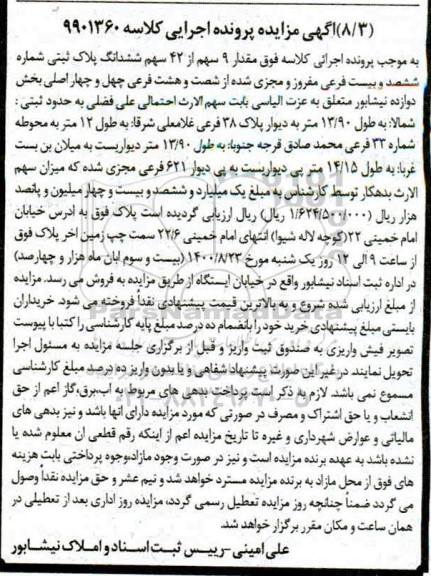 (۸/۳)اگهی مزایده پرونده اجرایی کلاسه ۹۹۰۱۳۶۰
به موجب پرونده اجرائی کلاسه فوق مقدار ۹ سهم از ۴۲ سهم ششدانگ پلاک ثبتی شماره
ششصد و بیست فرعی مفروز و مجزی شده از شصت و هشت فرعی چهل و چهار اصلی بخش
دوازده نیشابور متعلق به عزت الیاسی بابت سهم الارث احتمالی علی فضلی به حدود ثبتی :
شمالا: به طول ۱۳/۹۰ متر به دیوار پلاک ۳۸ فرعی غلامعلی شرقا: به طول ۱۲ متر به محوطه
شماره ۳۳ فرعی محمد صادق قرجه جنوبا: به طول ۱۳/۹۰ متر دیواریست به میلان بن بست
غربا: به طول ۱۴/۱۵ متر پی دیواریست به پی دیوار ۶۲۱ فرعی مجزی شده که میزان سهم
الارث بدهکار توسط کارشناس به مبلغ یک میلیارد و ششصد و بیست و چهار میلیون و پانصد
هزار ریال (۱/۶۲۴/۵۰۰/۰۰۰ ریال) ریال ارزیابی گردیده است پلاک فوق به ادرس خیابان
امام خمینی ۲۲(کوچه لاله شیوا) انتهای امام خمینی ۲۲/۶ سمت چپ زمین اخر پلاک فوق
از ساعت ۹ الی ۱۲ روز یک شنبه مورخ ۱۴۰۰/۸/۲۳ (بیست و سوم ابان ماه هزار و چهارصد)
در اداره ثبت اسناد نیشابور واقع در خیابان ایستگاه از طریق مزایده به فروش می رسد. مزایده
از مبلغ ارزیابی شده شروع و به بالاترین قیمت پیشنهادی نقداً فروخته می شود. خریداران
بایستی مبلغ پیشنهادی خرید خود را بانضمام ده درصد مبلغ پایه کارشناسی را کتبا با پیوست
تصویر فیش واریزی به صندوق ثبت واریز و قبل از برگزاری جلسه مزایده به مسئول اجرا
تحویل نمایند در غیر این صورت پیشنهاد شفاهی و یا بدون واریز ده درصد مبلغ کارشناسی
مسموع نمی باشد. لازم به ذکر است پرداخت بدهی های مربوط به آب،برق،گاز اعم از حق
انشعاب و یا حق اشتراک و مصرف در صورتی که مورد مزایده دارای انها باشد و نیز بدهی های
مالیاتی و عوارض شهرداری و غیره تا تاریخ مزایده اعم از اینکه رقم قطعی ان معلوم شده یا
نشده باشد به عهده برنده مزایده است و نیز در صورت وجود مازاد،وجوه پرداختی بابت هزینه
های فوق از محل مازاد به برنده مزایده مسترد خواهد شد و نیم عشر و حق مزایده نقداً وصول
می گردد ضمناً چنانچه روز مزایده تعطیل رسمی گردد، مزایده روز اداری بعد از تعطیلی در
همان ساعت و مکان مقرر برگزار خواهد شد.
علی امینی -رییس ثبت اسناد و املاک نیشابور